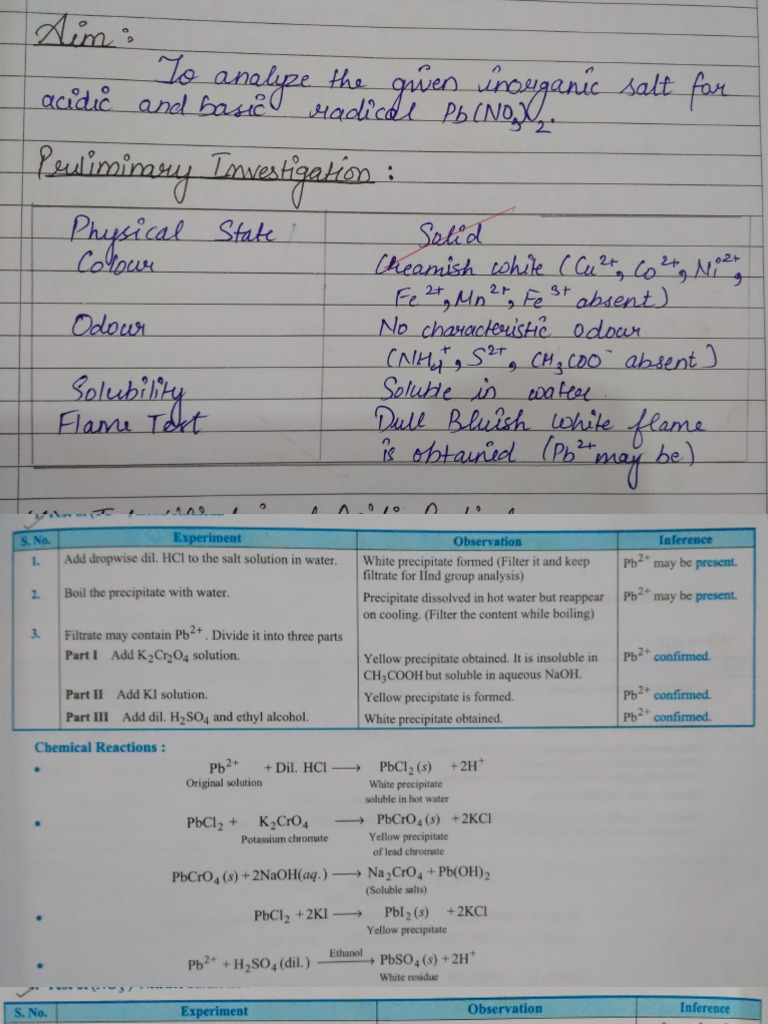 Aim :
To analyze the given inorganic salt for
acidic and basic radical Pb(NO₃)₂.
Preliminary Investigation :
Physical State Solid
Colour Creamish white (Cu²⁺, Co²⁺, Ni²⁺,
Fe²⁺, Mn²⁺, Fe³⁺ absent)
Odour No characteristic odour
(NH₄⁺, S²⁺, CH₃COO⁻ absent)
Solubility Soluble in water.
Flame Test Dull Bluish white flame
is obtained (Pb²⁺ may be)
S. No. Experiment Observation Inference
1. Add dropwise dil. HCl to the salt solution in water. White precipitate formed (Filter it and keep Pb²⁺ may be present.
filtrate for IInd group analysis)
2. Boil the precipitate with water. Precipitate dissolved in hot water but reappear Pb²⁺ may be present.
on cooling. (Filter the content while boiling)
3. Filtrate may contain Pb²⁺. Divide it into three parts
Part I Add K₂Cr₂O₄ solution. Yellow precipitate obtained. It is insoluble in Pb²⁺ confirmed.
CH₃COOH but soluble in aqueous NaOH.
Part II Add KI solution. Yellow precipitate is formed. Pb²⁺ confirmed.
Part III Add dil. H₂SO₄ and ethyl alcohol. White precipitate obtained. Pb²⁺ confirmed.
Chemical Reactions :
• Pb²⁺ + Dil. HCl ⟶ PbCl₂ (s) + 2H⁺
Original solution White precipitate
soluble in hot water
• PbCl₂ + K₂CrO₄ ⟶ PbCrO₄ (s) + 2KCl
Potassium chromate Yellow precipitate
of lead chromate
PbCrO₄ (s) + 2NaOH(aq.) ⟶ Na₂CrO₄ + Pb(OH)₂
(Soluble salts)
• PbCl₂ + 2KI ⟶ PbI₂ (s) + 2KCl
Yellow precipitate
• Pb²⁺ + H₂SO₄ (dil.) Ethanol ⟶ PbSO₄ (s) + 2H⁺
White residue
S. No. Experiment Observation Inference